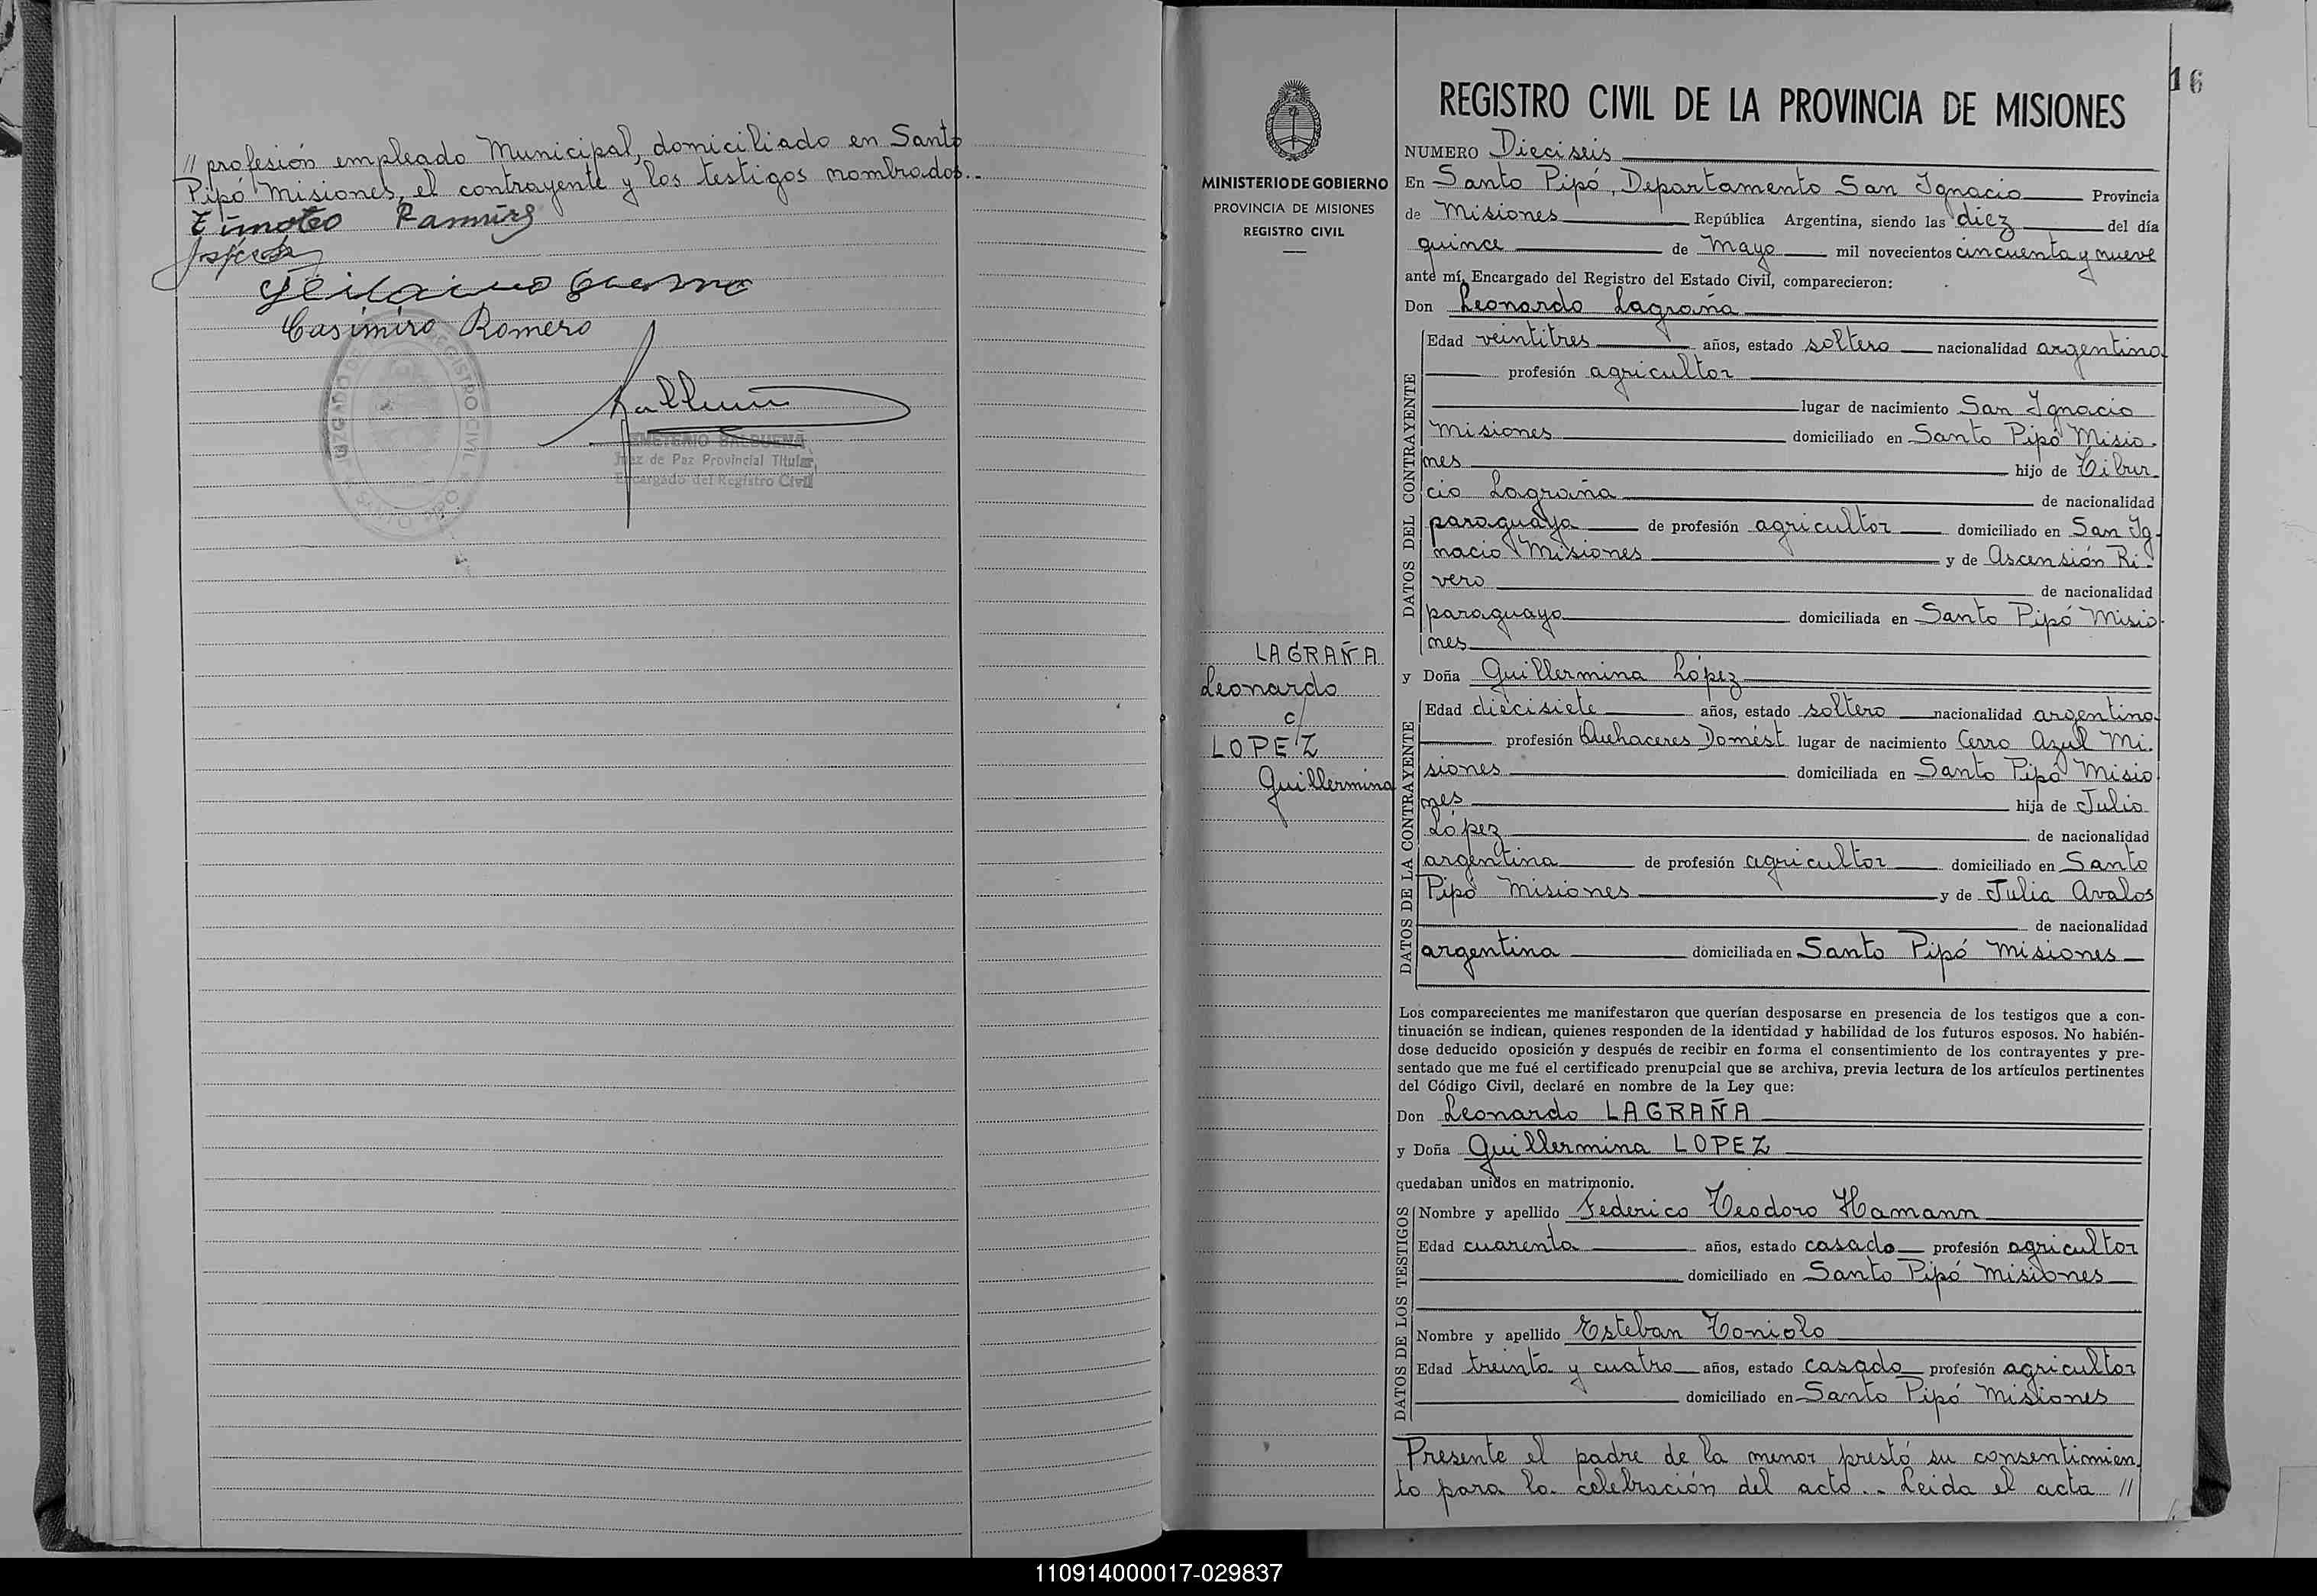 // profesión empleado Municipal, domiciliado en Santo
Pipó Misiones, el contrayente y los testigos nombrados.-
Timoteo Ramírez
Casimiro Romero
REGISTRO CIVIL
SANTO PIPO
BALBUENA
Juez de Paz Provincial Titular
Encargado del Registro Civil
16
MINISTERIO DE GOBIERNO
PROVINCIA DE MISIONES
REGISTRO CIVIL
LAGRAÑA
Leonardo
c/
LOPEZ
Guillermina
REGISTRO CIVIL DE LA PROVINCIA DE MISIONES
NUMERO Dieciseis
En Santo Pipó, Departamento San Ignacio Provincia
de Misiones República Argentina, siendo las diez del día
quince de Mayo mil novecientos cincuenta y nueve
ante mí, Encargado del Registro del Estado Civil, comparecieron:
Don Leonardo Lagraña
DATOS DEL CONTRAYENTE
Edad veintitres años, estado soltero nacionalidad argentina
profesión agricultor
lugar de nacimiento San Ignacio
Misiones domiciliado en Santo Pipó Misio-
nes hijo de Tibur-
cio Lagraña de nacionalidad
paraguaya de profesión agricultor domiciliado en San Ig-
nacio Misiones y de Ascensión Ri-
vero de nacionalidad
paraguaya domiciliada en Santo Pipó Misio-
nes
y Doña Guillermina López
DATOS DE LA CONTRAYENTE
Edad diecisiete años, estado soltera nacionalidad argentina
profesión Quehaceres Domést. lugar de nacimiento Cerro Azul Mi-
siones domiciliada en Santo Pipó Misio-
nes hija de Julio
López de nacionalidad
argentina de profesión agricultor domiciliado en Santo
Pipó Misiones y de Julia Avalos
de nacionalidad
argentina domiciliada en Santo Pipó Misiones
Los comparecientes me manifestaron que querían desposarse en presencia de los testigos que a con-
tinuación se indican, quienes responden de la identidad y habilidad de los futuros esposos. No habién-
dose deducido oposición y después de recibir en forma el consentimiento de los contrayentes y pre-
sentado que me fué el certificado prenupcial que se archiva, previa lectura de los artículos pertinentes
del Código Civil, declaré en nombre de la Ley que:
Don Leonardo LAGRAÑA
y Doña Guillermina LOPEZ
quedaban unidos en matrimonio.
DATOS DE LOS TESTIGOS
Nombre y apellido Federico Teodoro Hamann
Edad cuarenta años, estado casado profesión agricultor
domiciliado en Santo Pipó Misiones
Nombre y apellido Esteban Toniolo
Edad treinta y cuatro años, estado casado profesión agricultor
domiciliado en Santo Pipó Misiones
Presente el padre de la menor prestó su consentimien-
to para la celebración del acto.- Leida el acta //
110914000017-029837